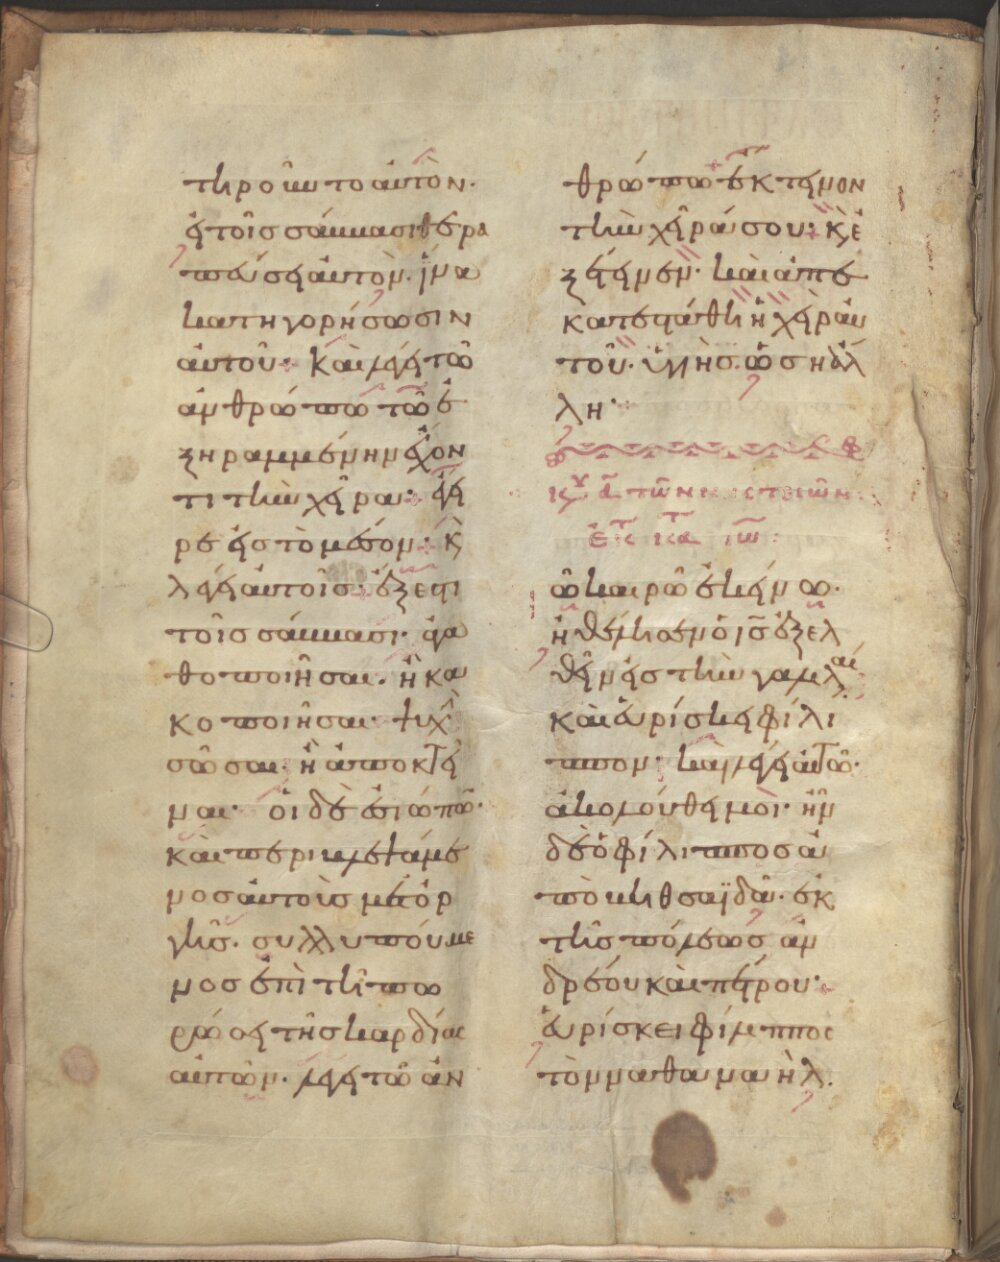 τηροῦντο αὐτὸν·
ἐν τοῖς σάββασι θερα
πεύσει αὐτὸν· ἵνα
κατηγορήσωσιν
αὐτοῦ· καὶ λέγει τῶ
ἀνθρώπω τῶ ἐ
ξηραμμένην ἔχον
τι τὴν χεῖρα· ἔγει
ρε εἰς τὸ μέσον· κ(αὶ)
λέγει αὐτοῖς· ἔξεστι
τοῖς σάββασι· ἀγα
θοποιῆσαι· ἢ κα
κοποιῆσαι· ψυχὴ(ν)
σῶσαι· ἢ ἀποκτεῖ
ναι· οἱ δὲ ἐσιώπων·
καὶ περιβλεψάμε
νος αὐτοὺς μετ ὀρ
γῆς· συλλυπούμε
νος ἐπὶ τῆ πω
ρώσει τῆς καρδίας
αὐτῶν· λέγει τῶ ἀν
θρώπω ἔκτεινον
τὴν χεῖρά σου· κ(αὶ) ἐ
ξέτεινεν· καὶ ἀπε
κατεστάθη ἡ χεὶρ αὐ
τοῦ· ὑγιὴς ὡς ἡ ἄλ
λη·
κυ α τῶν νηστειῶν
ἐκ τ κατ ιω
τῶ καιρῶ ἐκείνω·
ἠθέλησεν ὁ ις ἐξελ
θεῖν εἰς τὴν γαλιλαί(αν)
καὶ εὑρίσκει φίλι
ππον· καὶ λέγει αὐτῶ·
ἀκολούθει μοι· ἦν
δὲ ὁ φίλιππος ἀ
πὸ βηθσαϊδά· ἐκ
τῆς πόλεως ἀν
δρέου καὶ πέτρου·
εὑρίσκει φίλιππος
τὸν ναθαναὴλ·